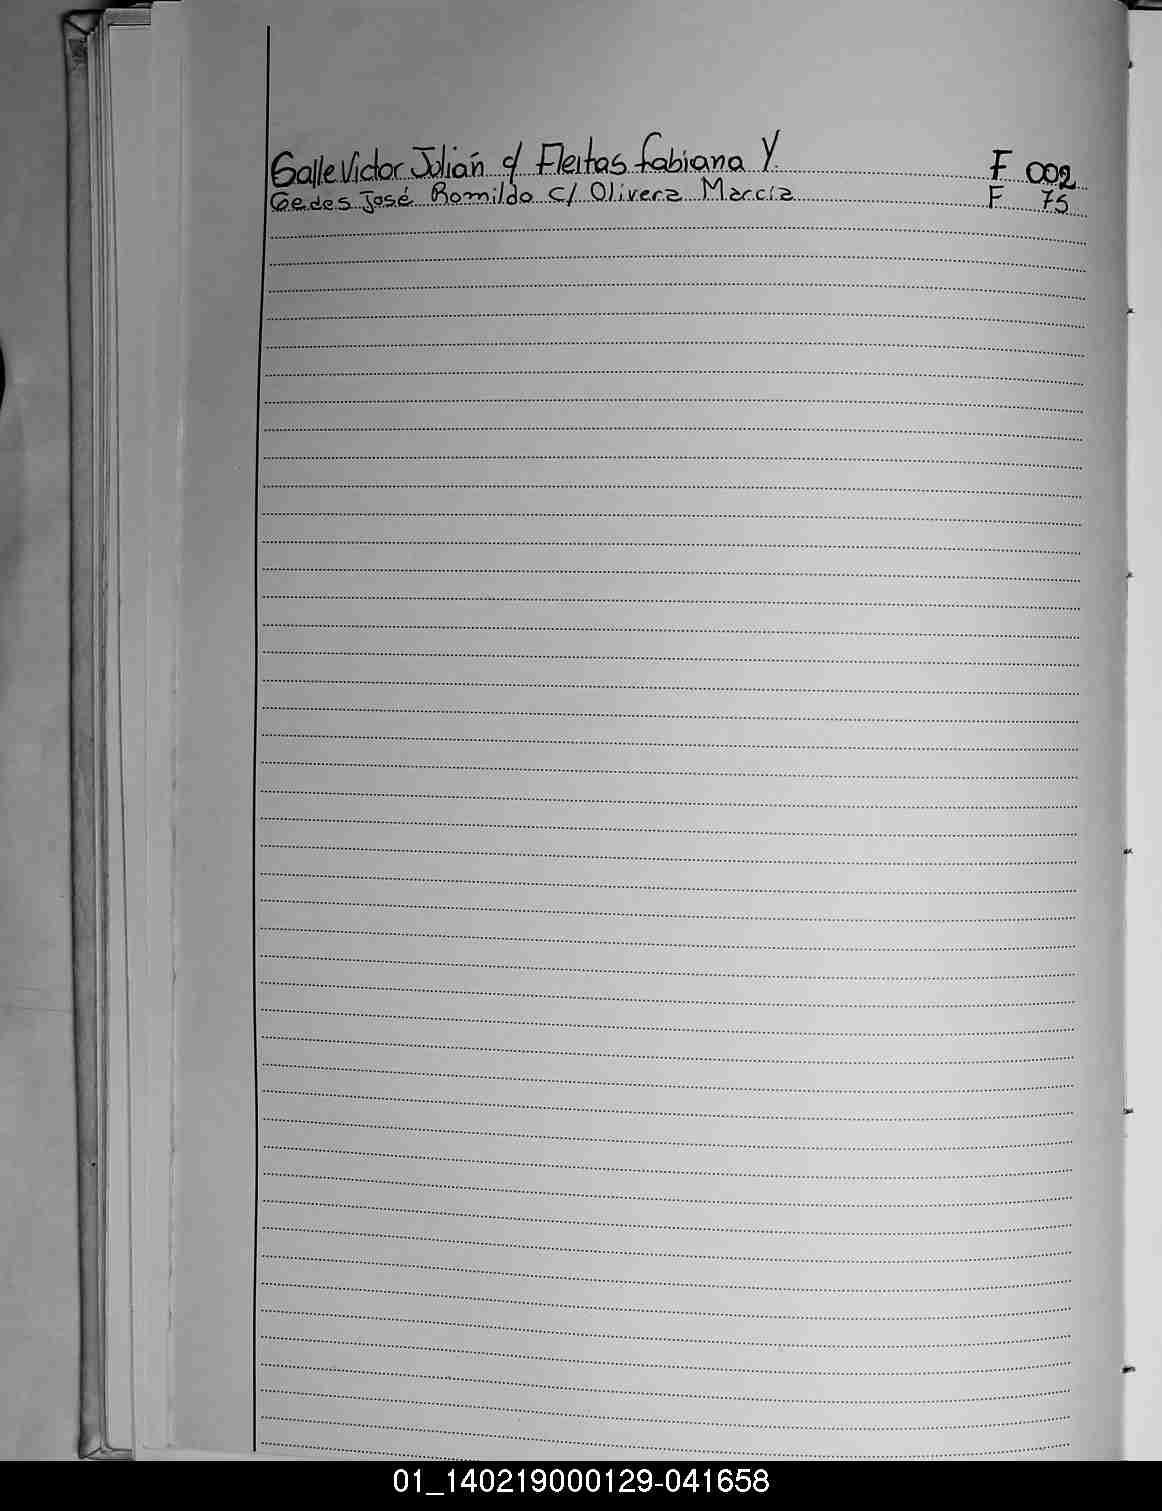 Galle Victor Julián c/ Fleitas Fabiana Y. F 002
Gedes José Romildo c/ Olivera Marcia F 75
01_140219000129-041658